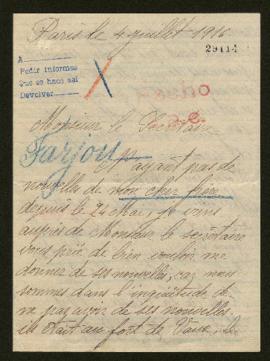 Paris le 4 juillet 1916
29114
A
Pedir informes
Que se haga así
Devolver
Hecho
Monsieur le Secrétaire
Farjou
N'ayant pas de
nouvelle de mon cher frère
depuis le 24 mai, je viens
auprès de Monsieur le secrétaire
vous prié de bien vouloir me
donner de ses nouvelles, car nous
sommes dans l'inquiétude de
ne pas avoir de ses nouvelles.
il était au fort de Vaux, le